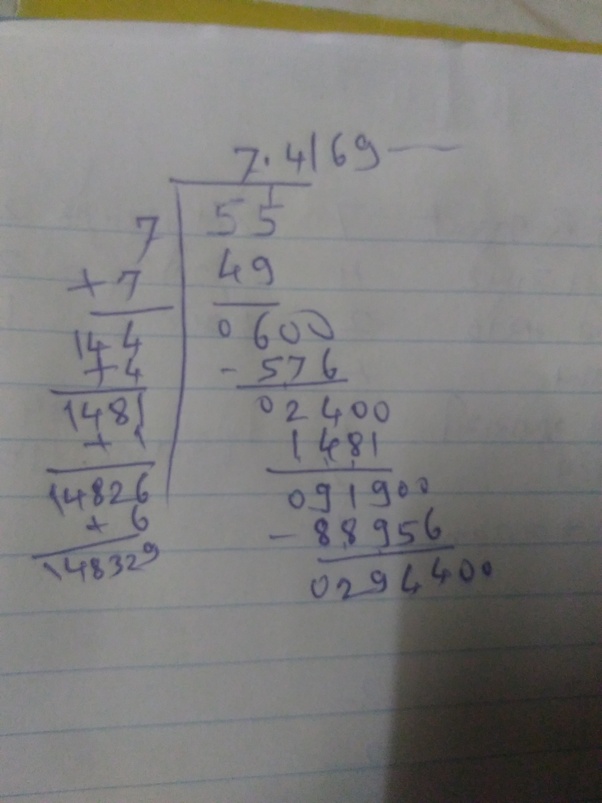 7.4169
7 55
+7 49
144 0600
+4 - 576
1481 02400
+1 1481
14826 091900
+6 - 88956
148329 0294400